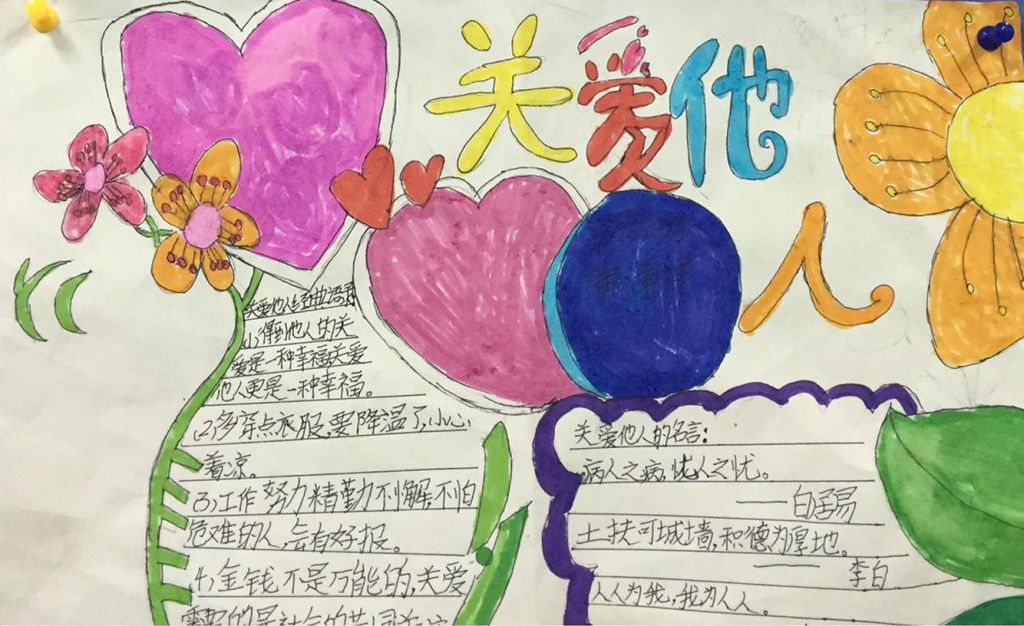 关爱他
人
关爱他人经典语录
(1)得到他人的关
爱是一种幸福关爱
他人更是一种幸福。
(2)多穿点衣服,要降温了,小心
着凉。
(3)工作努力精勤不懈,不怕
危难的人,会有好报。
(4)金钱不是万能的,关爱
关爱他人的名言:
病人之病,忧人之忧。
——白居易
土扶可城墙,积德为厚地。
——李白
人人为我,我为人人。